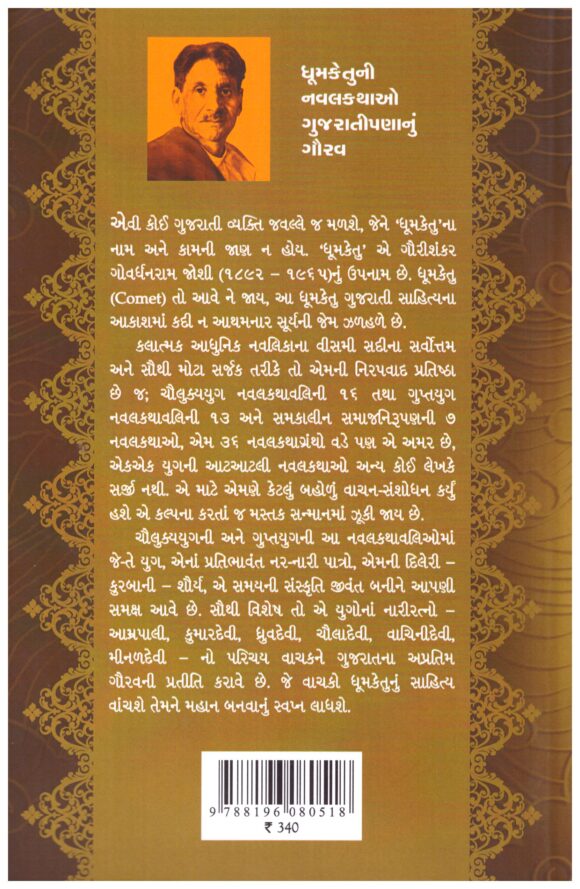 ધૂમકેતુની
નવલકથાઓ
ગુજરાતીપણાનું
ગૌરવ
એવી કોઈ ગુજરાતી વ્યક્તિ જવલ્લે જ મળશે, જેને ‘ધૂમકેતુ’ના
નામ અને કામની જાણ ન હોય. ‘ધૂમકેતુ’ એ ગૌરીશંકર
ગોવર્ધનરામ જોશી (૧૮૯૨ – ૧૯૬૫)નું ઉપનામ છે. ધૂમકેતુ
(Comet) તો આવે ને જાય, આ ધૂમકેતુ ગુજરાતી સાહિત્યના
આકાશમાં કદી ન આથમનાર સૂર્યની જેમ ઝળહળે છે.
કલાત્મક આધુનિક નવલિકાના વીસમી સદીના સર્વોત્તમ
અને સૌથી મોટા સર્જક તરીકે તો એમની નિરપવાદ પ્રતિષ્ઠા
છે જ; ચૌલુક્યયુગ નવલકથાવલિની ૧૬ તથા ગુપ્તયુગ
નવલકથાવલિની ૧૩ અને સમકાલીન સમાજનિરૂપણની ૭
નવલકથાઓ, એમ ૩૬ નવલકથાગ્રંથો વડે પણ એ અમર છે,
એકએક યુગની આટઆટલી નવલકથાઓ અન્ય કોઈ લેખકે
સર્જી નથી. એ માટે એમણે કેટલું બહોળું વાચન-સંશોધન કર્યું
હશે એ કલ્પના કરતાં જ મસ્તક સન્માનમાં ઝૂકી જાય છે.
ચૌલુક્યયુગની અને ગુપ્તયુગની આ નવલકથાવલિઓમાં
જે-તે યુગ, એનાં પ્રતિભાવંત નર-નારી પાત્રો, એમની દિલેરી –
કુરબાની – શૌર્ય, એ સમયની સંસ્કૃતિ જીવંત બનીને આપણી
સમક્ષ આવે છે. સૌથી વિશેષ તો એ યુગોનાં નારીરત્નો –
આમ્રપાલી, કુમારદેવી, ધ્રુવદેવી, ચૌલાદેવી, વાચિનીદેવી,
મીનળદેવી – નો પરિચય વાચકને ગુજરાતના અપ્રતિમ
ગૌરવની પ્રતીતિ કરાવે છે. જે વાચકો ધૂમકેતુનું સાહિત્ય
વાંચશે તેમને મહાન બનવાનું સ્વપ્ન લાધશે.
9 788196 080518
₹ 340